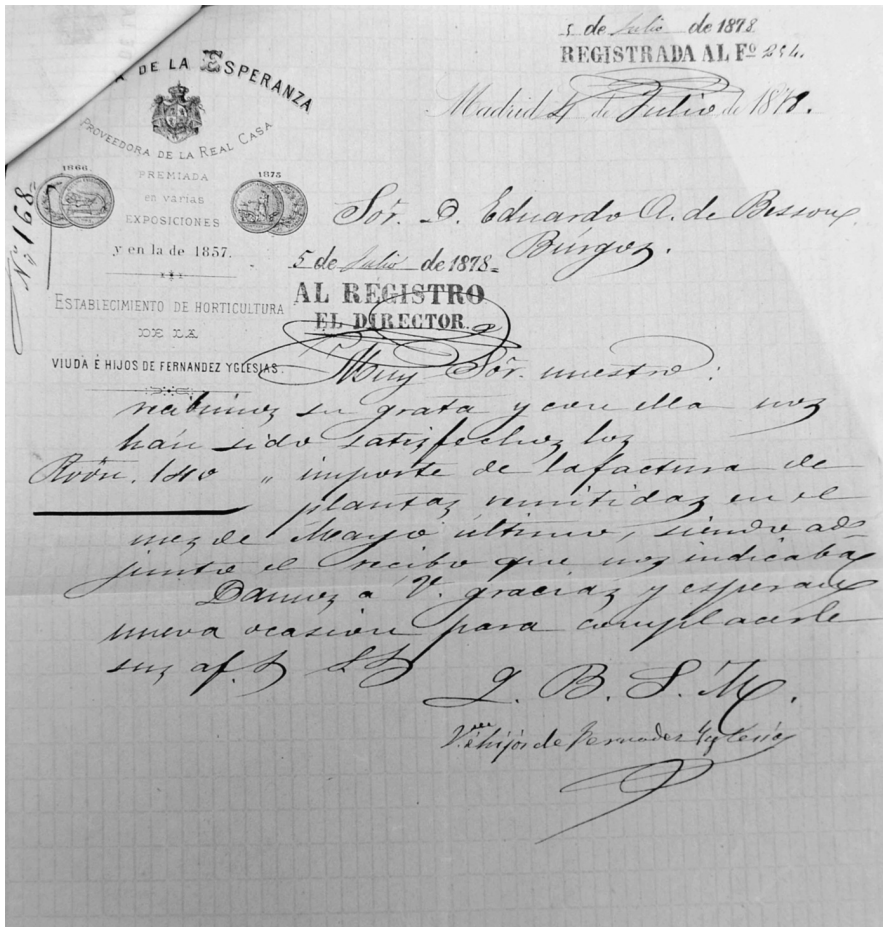 5 de Julio de 1878
REGISTRADA AL Fº 254.
Madrid 4 de Julio de 1878.
DE LA ESPERANZA
PROVEEDORA DE LA REAL CASA
PREMIADA
en varias
EXPOSICIONES
y en la de 1857.
1866
1875
Nº 168
ESTABLECIMIENTO DE HORTICULTURA
DE LA
VIUDA É HIJOS DE FERNANDEZ YGLESIAS.
Sor. D. Eduardo A. de Besson
Búrgos.
5 de Julio de 1878
AL REGISTRO
EL DIRECTOR.
Muy Sor. nuestro:
recibimos su grata y con ella nos
han sido satisfechos los
Rvón. 140 " importe de la factura de
plantas remitidas en el
mes de Mayo último, siendo ad-
junto el recibo que nos indicaba
Damos a V. gracias y esperamos
nueva ocasion para complacerle
sus af. SS
Q. B. S. M.
V.da é hijos de Fernandez Yglesias